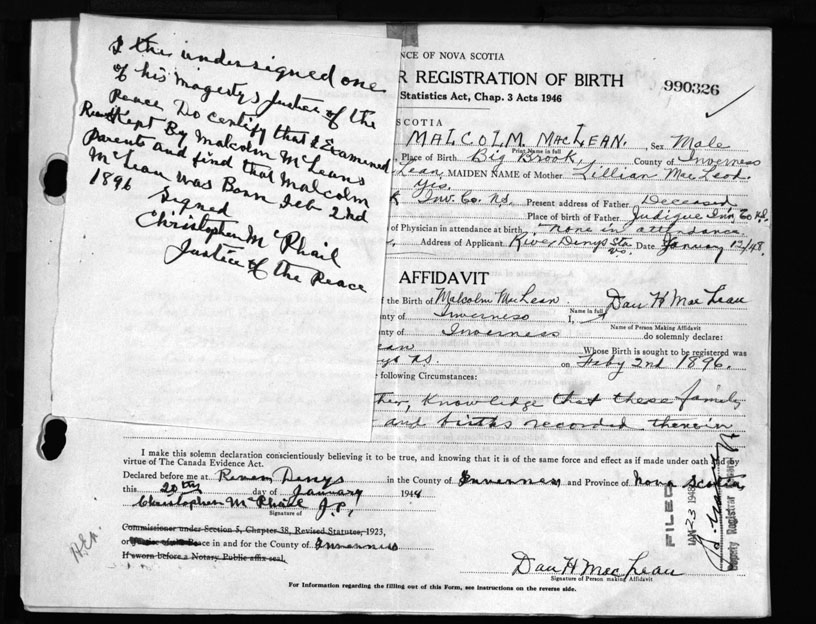 I the undersigned one
of his Magesty,s Justice of the
Peace Do certify that I Examined
Record Kept By Malcolm McLeans
Parents and find that Malcolm
McLean was Born Feb 2nd
1896
Signed
Christopher McPhail
Justice of the Peace
NCE OF NOVA SCOTIA
R REGISTRATION OF BIRTH
990326
Statistics Act, Chap. 3 Acts 1946
SCOTIA
MALCOLM MACLEAN. Sex Male
Print Name in full
Place of Birth Big Brook, County of Inverness
Lean, MAIDEN NAME of Mother Lillian MacLeod.
Yes.
Inv. Co. N.S. Present address of Father Deceased
Place of birth of Father Judique Inv. Co N.S.
of Physician in attendance at birth none in attendance.
Address of Applicant River Denys Sta. N.S. Date January 12/48.
AFFIDAVIT
f the Birth of Malcolm MacLean Dan H MacLean
Name in full
nty of Inverness I,
Name of Person Making Affidavit
nty of Inverness do solemnly declare:
ean Whose Birth is sought to be registered was
ys N.S. on Feby 2nd 1896.
following Circumstances:
ther, Knowledge that these family
and births recorded therein
I make this solemn declaration conscientiously believing it to be true, and knowing that it is of the same force and effect as if made under oath and by
virtue of The Canada Evidence Act.
Declared before me at River Denys in the County of Inverness and Province of Nova Scotia
this 20th day of January 1948
Christopher McPhail J.P.
Signature of
Commissioner under Section 5, Chapter 38, Revised Statutes, 1923,
or Justice of the Peace in and for the County of Inverness
If sworn before a Notary Public affix seal.
FILED
JAN 23 1948
Deputy Registrar
Dan H MacLean
Signature of Person making Affidavit
For Information regarding the filling out of this Form, see instructions on the reverse side.